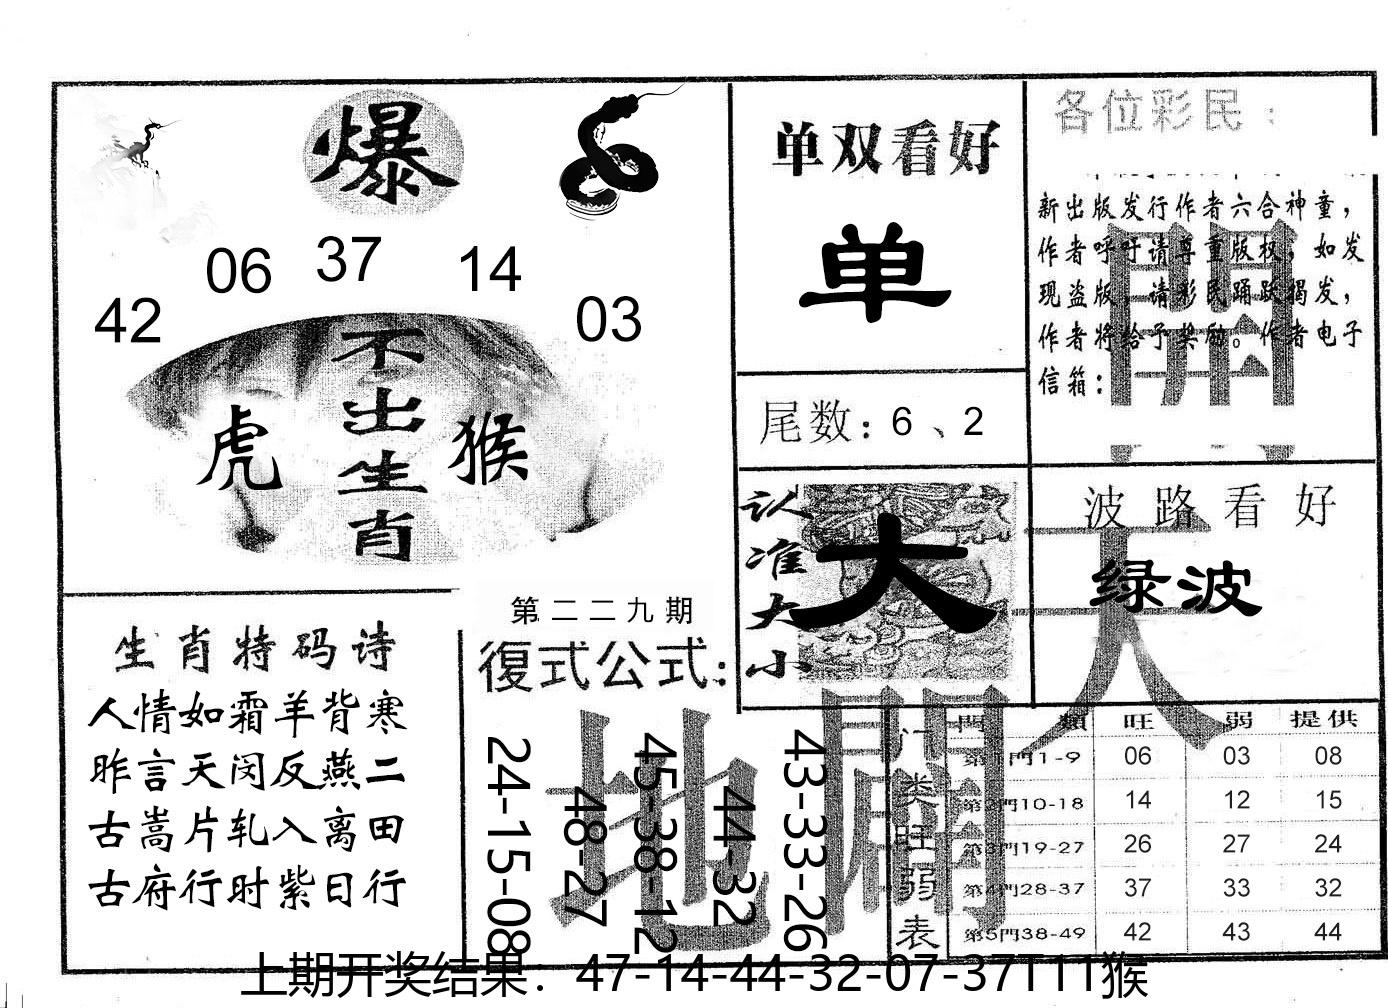 爆
06 37 14
42 03
不出生肖
虎 猴
单双看好
单
尾数：6 、2
各位彩民：
新出版发行作者六合神童，
作者呼吁请尊重版权，如发
现盗版，请彩民踊跃揭发，
作者将给予奖励。作者电子
信箱：
認准大小
大
波路看好
绿波
天
開
地
闢
生肖特码诗
人情如霜羊背寒
昨言天闵反燕二
古嵩片轧入离田
古府行时紫日行
第二二九期
復式公式：
24-15-08
48-27
45-38-12
44-32
43-33-26
门类旺弱表
門類 旺 弱 提供
第1門1-9 06 03 08
第2門10-18 14 12 15
第3門19-27 26 27 24
第4門28-37 37 33 32
第5門38-49 42 43 44
上期开奖结果：47-14-44-32-07-37T11猴